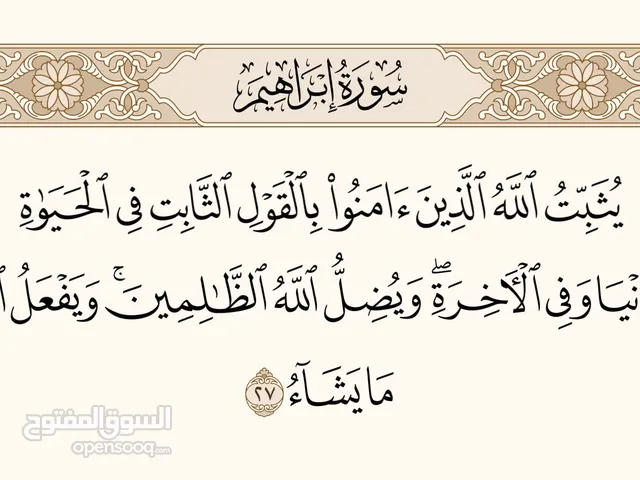 سُورَةُ إِبْرَاهِيمَ
يُثَبِّتُ ٱللَّهُ ٱلَّذِينَ ءَامَنُوا۟ بِٱلْقَوْلِ ٱلثَّابِتِ فِي ٱلْحَيَوٰةِ
نْيَا وَفِي ٱلْأَخِرَةِ ۖ وَيُضِلُّ ٱللَّهُ ٱلظَّٰلِمِينَ ۚ وَيَفْعَلُ
مَا يَشَآءُ ٢٧
السوق المفتوح
opensooq.com